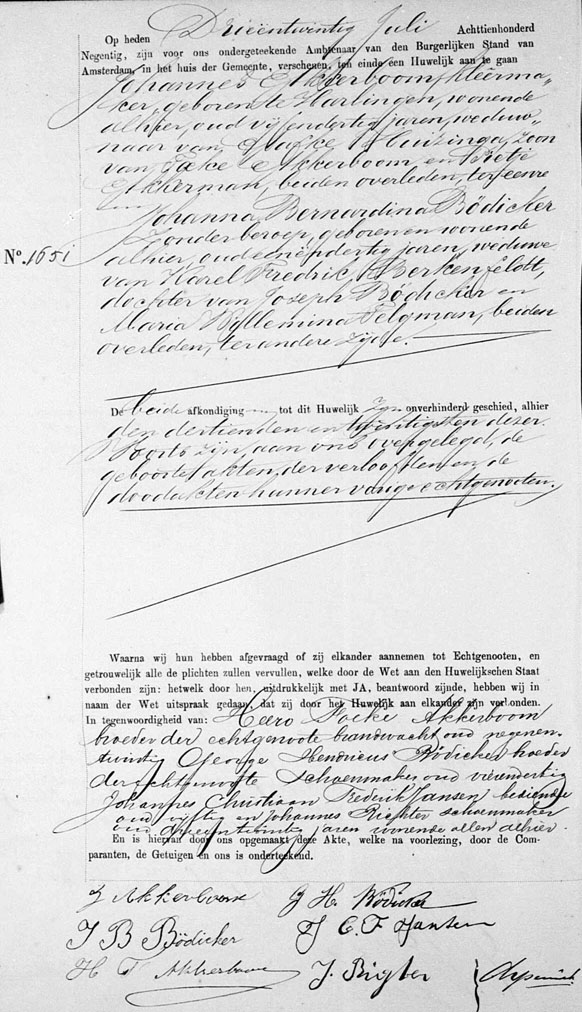 Op heden Drieëntwintig Juli Achttienhonderd
Negentig, zijn voor ons ondergeteekende Ambtenaar van den Burgerlijken Stand van
Amsterdam, in het huis der Gemeente, verschenen, ten einde een Huwelijk aan te gaan
Johannes Akkerboom, kleerma-
ker, geboren te Harlingen, wonende
alhier, oud vijfendertig jaren, weduw-
naar van Huizinga, zoon
van Akkerboom en
Akkerman, beiden overleden, ter eenre
en
Johanna Bernardina Bödicker
zonder beroep, geboren en wonende
alhier, oud eenendertig jaren, weduwe
van Karel Fredrik Berkenfeldt,
dochter van Joseph Bödicker en
Maria Willemina Pelgman, beiden
overleden, ter andere zijde.
No. 1651
De beide afkondiging en tot dit Huwelijk zijn onverhinderd geschied, alhier
den dertienden en twintigsten dezer.
Voorts zijn, aan ons overgelegd, de
geboorteakten der verloofden en de
doodakten hunner vorige echtgenooten.
Waarna wij hun hebben afgevraagd of zij elkander aannemen tot Echtgenooten, en
getrouwelijk alle de plichten zullen vervullen, welke door de Wet aan den Huwelijkschen Staat
verbonden zijn: hetwelk door hen, uitdrukkelijk met JA, beantwoord zijnde, hebben wij in
naam der Wet uitspraak gedaan, dat zij door het Huwelijk aan elkander zijn verbonden.
In tegenwoordigheid van: Heero Akkerboom
broeder der echtgenoote brandwacht oud negenen-
twintig George Hendricus Bödicker broeder
der echtgenoote schoenmaker oud vierendertig
Johannes Christiaan Frederik Jansen bediende
oud vijftig en Johannes Richter schoenmaker
oud drieentwintig jaren wonende allen alhier.
En is hiervan door ons opgemaakt deze Akte, welke na voorlezing, door de Com-
paranten, de Getuigen en ons is onderteekend.
J Akkerboom G H Bödicker
J B Bödicker J C F Jansen
H F Akkerboom J. Rigter